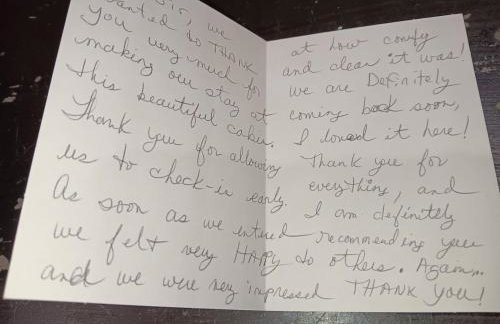 Sir, we
wanted to THANK
you very much for
making our stay at
this beautiful cabin.
Thank you for allowing
us to check-in early.
As soon as we entured
we felt very HAPPY
and we were very impressed
at how comfy
and clean it was!
we are Definitely
coming back soon,
I loved it here!
Thank you for
everything, and
I am definitely
recommending you
to others. Again...
THANK you!